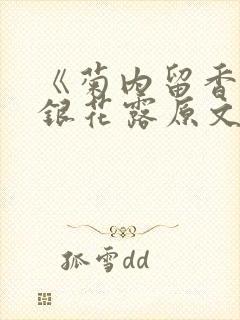 《菊内留香
银花露原文
孤雪dd